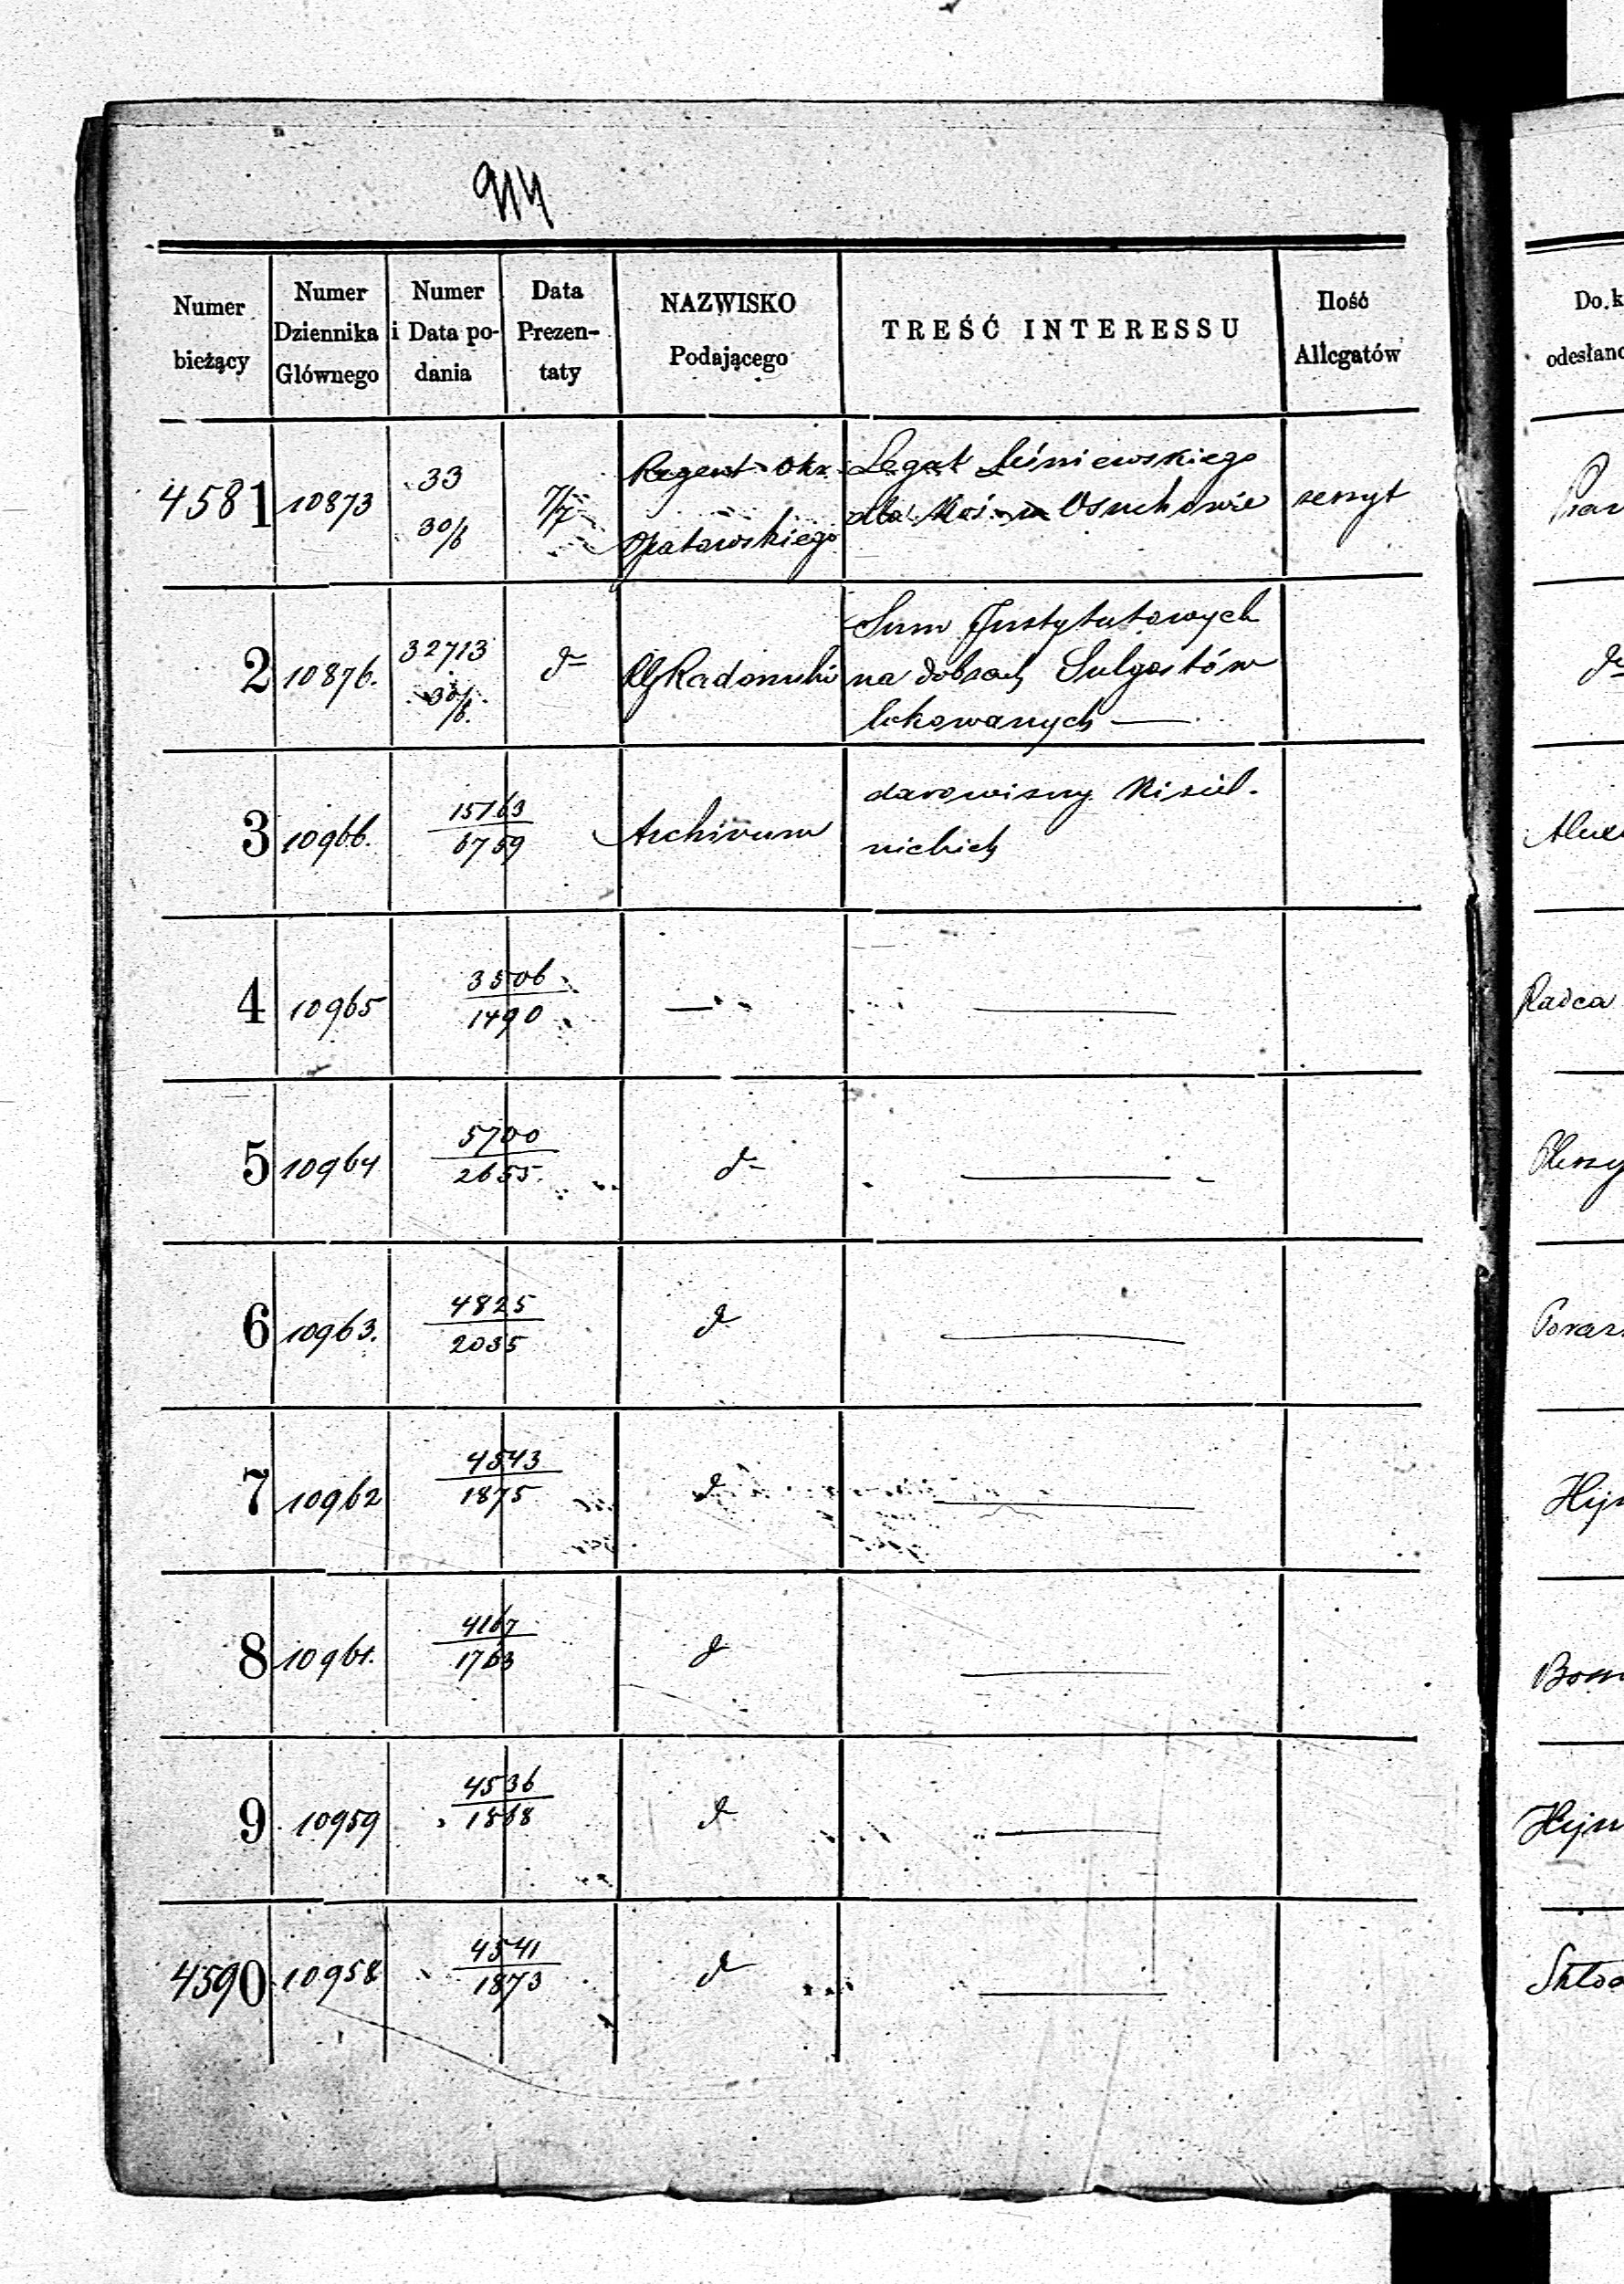 914
Numer bieżący | Numer Dziennika Głównego | Numer i Data podania | Data Prezentaty | NAZWISKO Podającego | TREŚĆ INTERESSU | Ilość Allegatów
4581 | 10873 | 33 30/6 | 7/7 | Regent Okr. Opatowskiego | Legat Leśniewskiego dla Koś. w Osuchowie | zeszyt
2 | 10876. | 32713 30/6. | d- | RG Radomski | Sum Instytutowych na dobrach Sulgostów lokowanych —
3 | 10966. | 15163/6759 | Archivum | darowizny Kisielnickich
4 | 10965 | 3506/1490 | — | —
5 | 10964 | 5700/2655. | d- | —
6 | 10963. | 4825/2035 | d- | —
7 | 10962 | 4543/1875 | d- | —
8 | 10961. | 4167/1763 | d- | —
9 | 10959 | 4536/1868 | d- | —
4590 | 10958 | 4541/1873 | d- | —
Do.k
odesłano
d-
Radca
Hijn